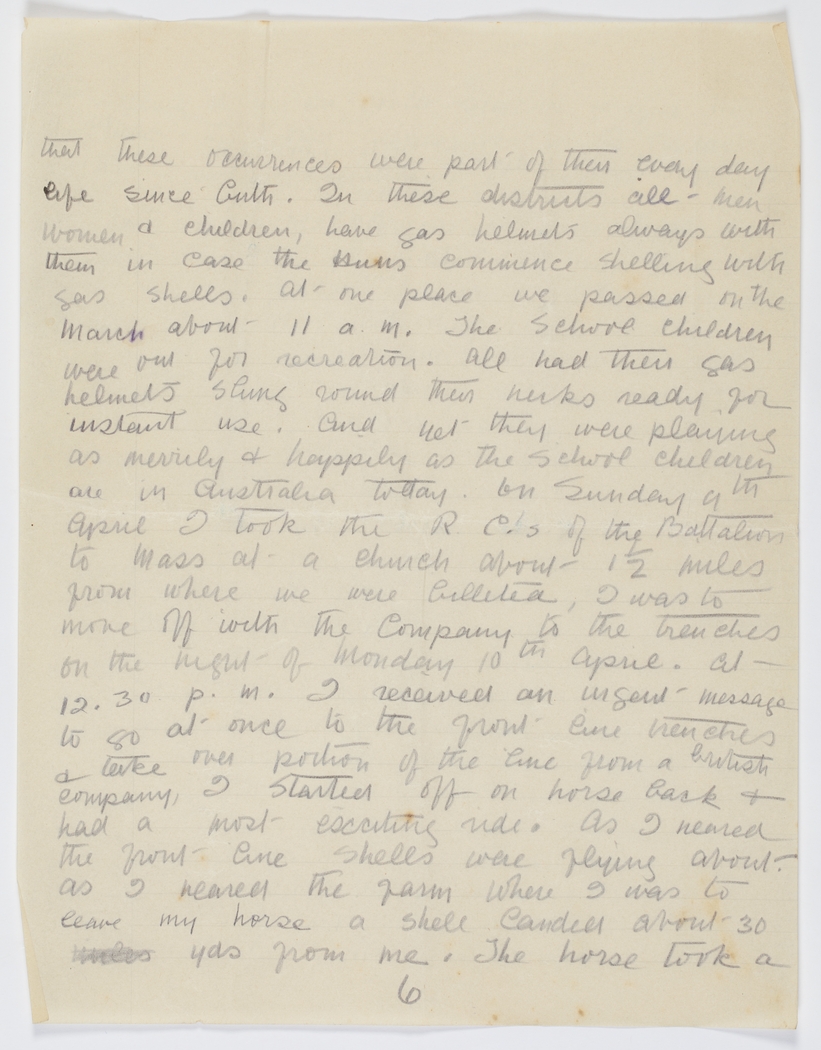 that these occurrences were part of their every day
life since birth. In these districts all men
women & children, have gas helmets always with
them in case the Huns commence shelling with
gas shells. At one place we passed on the
March about 11 a.m. The School children
were out for recreation. All had their gas
helmets slung round their necks ready for
instant use. And yet they were playing
as merrily & happily as the School children
are in Australia today. On Sunday 9th
April I took the R.C.'s of the Battalion
to Mass at a church about 1½ miles
from where we were billeted, I was to
move off with the Company to the trenches
on the night of Monday 10th April. At
12.30 p.m. I received an urgent message
to go at once to the front line trenches
& take over portion of the line from a British
company, I started off on horse back &
had a most exciting ride. As I neared
the front line shells were flying about.
As I neared the farm where I was to
leave my horse a shell landed about 30
miles yds from me. The horse took a
6